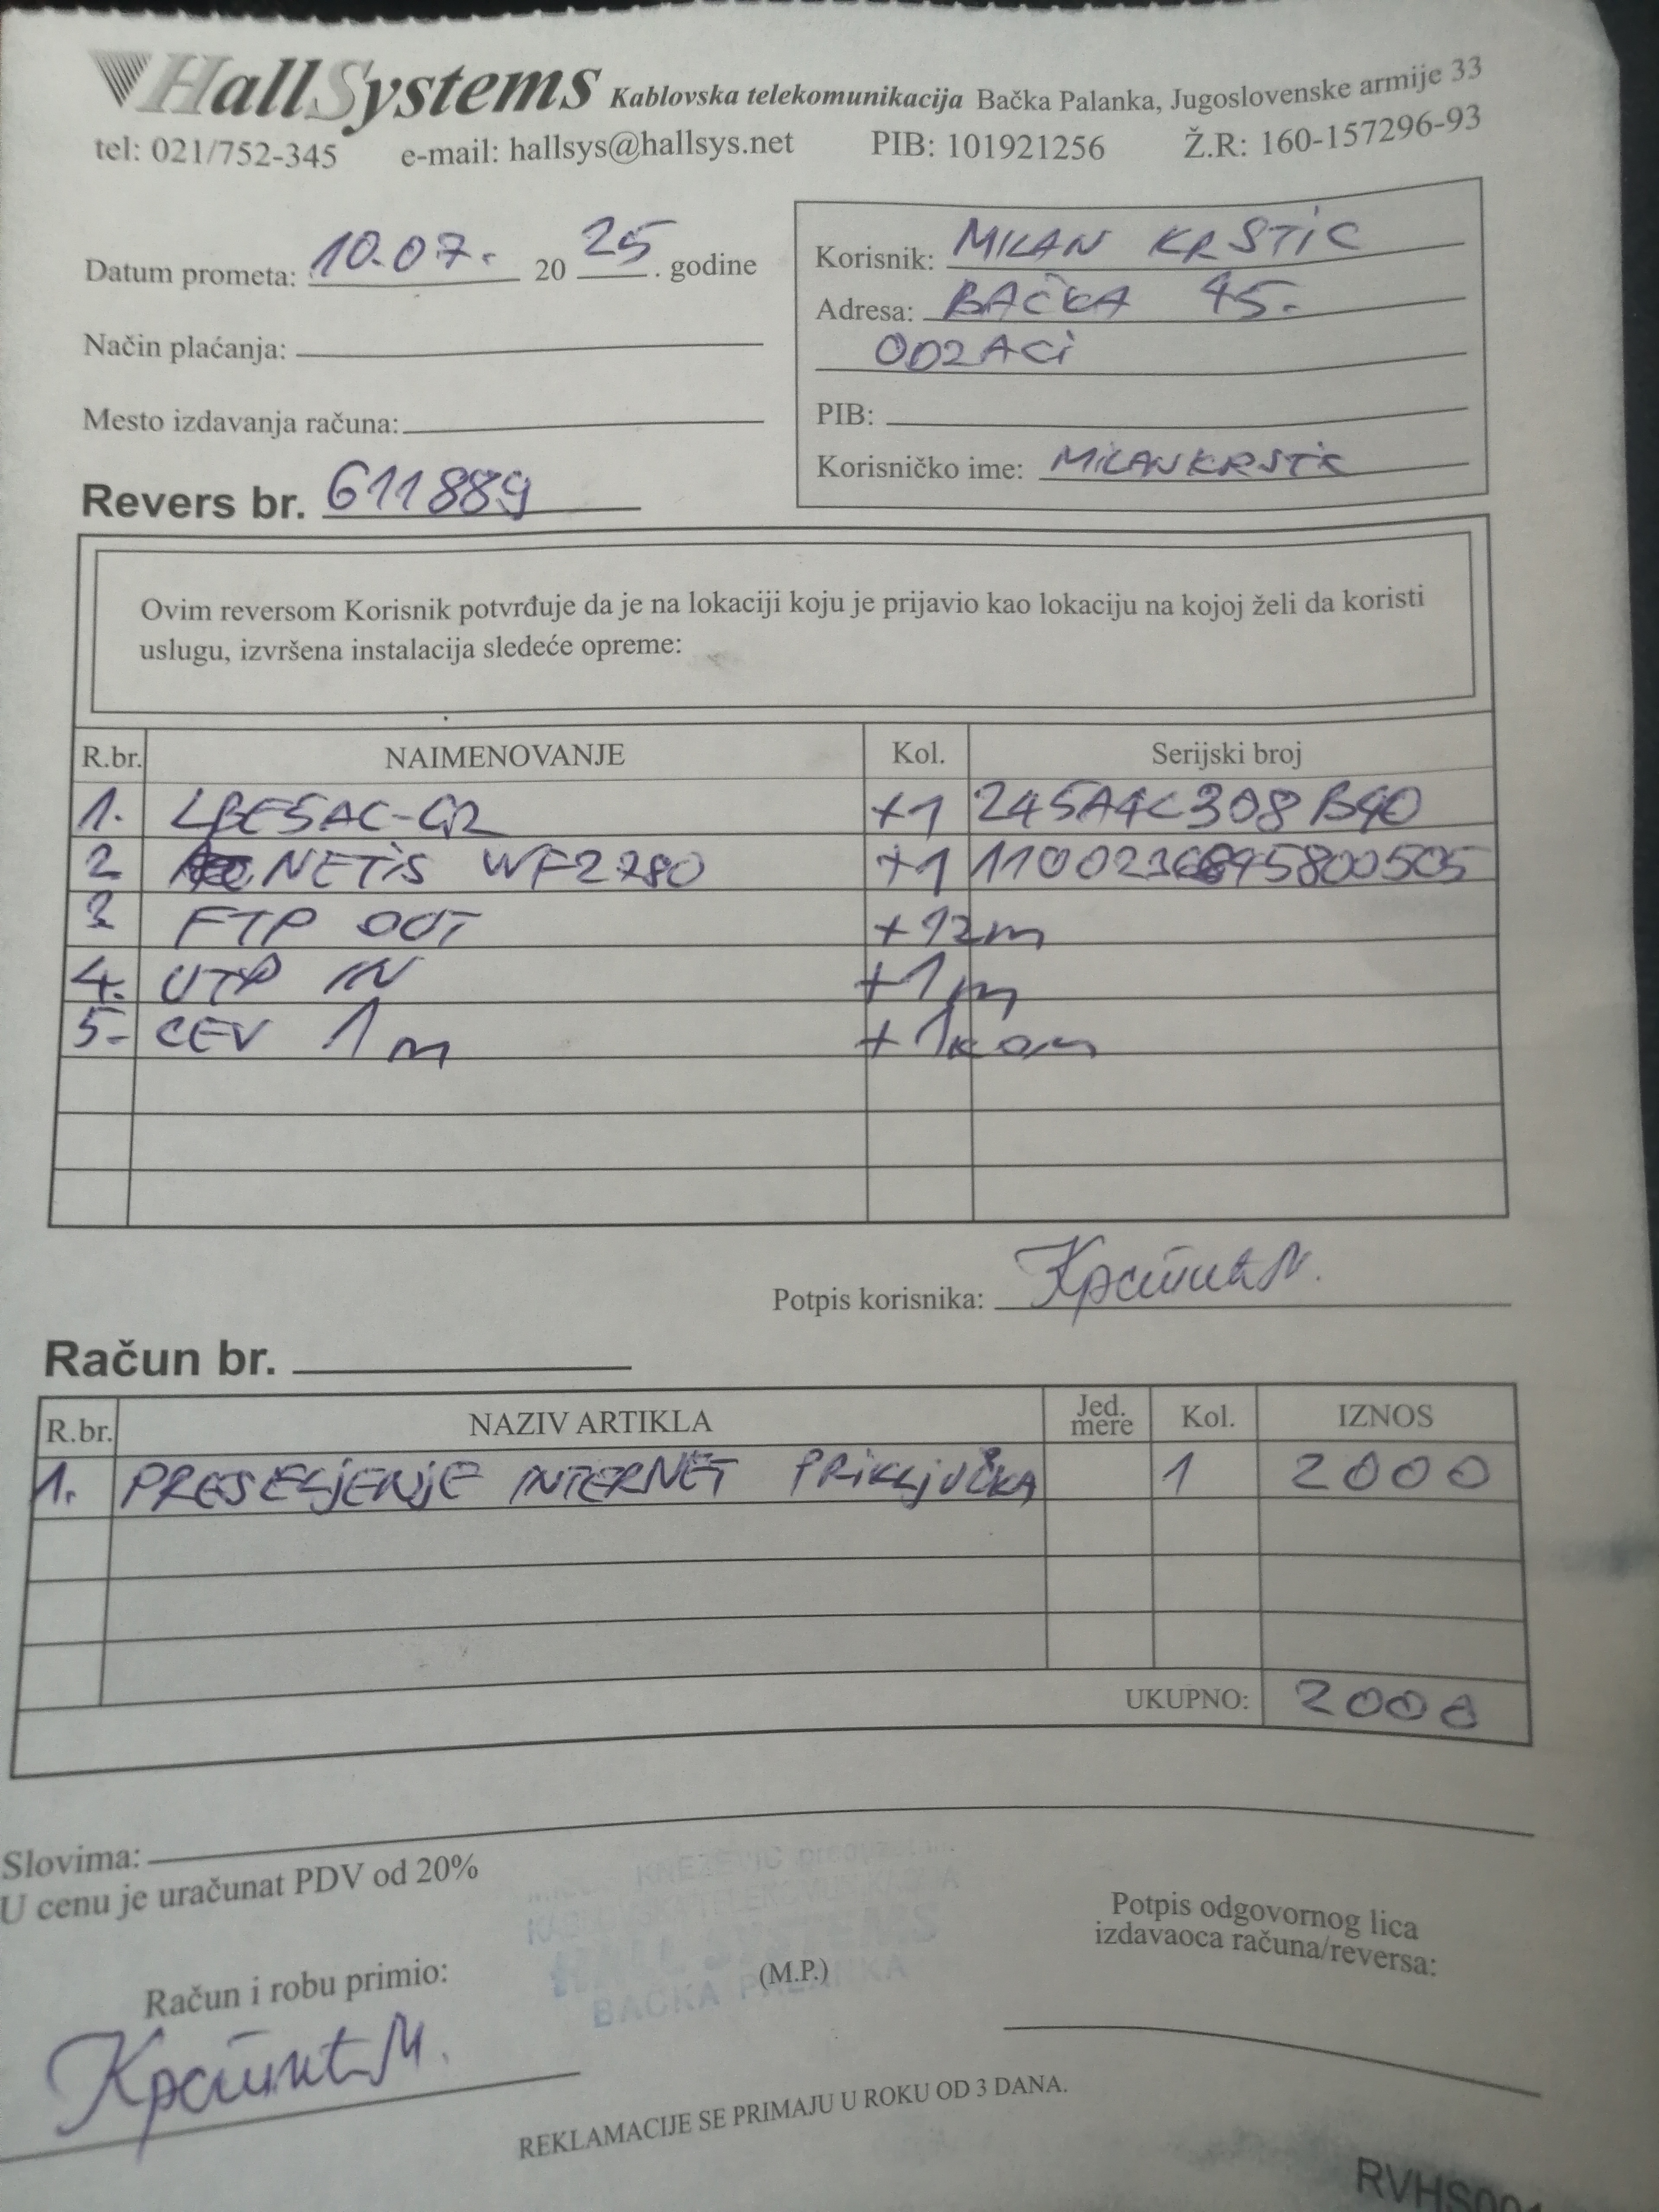 HallSystems Kablovska telekomunikacija Bačka Palanka, Jugoslovenske armije 33
tel: 021/752-345 e-mail: hallsys@hallsys.net PIB: 101921256 Ž.R: 160-157296-93
Datum prometa: 10.07. 20 25 . godine
Način plaćanja:
Mesto izdavanja računa:
Revers br. 611889
Korisnik: MILAN KRSTIC
Adresa: BAČKA 45.
ODZACI
PIB:
Korisničko ime: MILANKRSTIC
Ovim reversom Korisnik potvrđuje da je na lokaciji koju je prijavio kao lokaciju na kojoj želi da koristi
uslugu, izvršena instalacija sledeće opreme:
R.br. NAIMENOVANJE Kol. Serijski broj
1. LBE5AC-G2 +1 245A4C308B40
2 NETIS WF2780 +1
3 FTP OUT +12m
4. UTP IN +1m
5- CEV 1m +1kom
Potpis korisnika: Крстић М.
Račun br.
R.br. NAZIV ARTIKLA Jed. mere Kol. IZNOS
1. PRESELJENJE INTERNET PRIKLJUČKA 1 2000
UKUPNO: 2000
Slovima:
U cenu je uračunat PDV od 20%
KNEZEVIC
HALL SYSTEMS
BAČKA PALANKA
Račun i robu primio:
(M.P.)
Potpis odgovornog lica
izdavaoca računa/reversa:
Крстић М.
REKLAMACIJE SE PRIMAJU U ROKU OD 3 DANA.